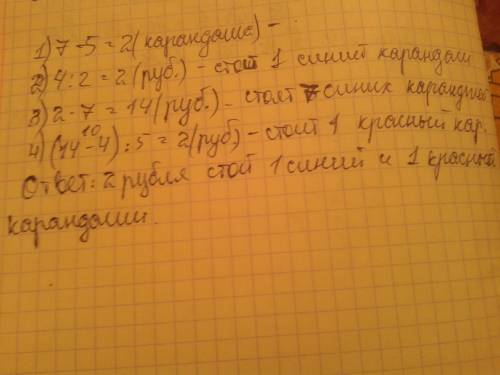 1) 7-5=2 (карандаша) -
2) 4:2=2 (руб.) - стоит 1 синий карандаш
3) 2·7=14 (руб.) - стоят 7 синих карандашей
10
4) (14-4):5=2 (руб) - стоит 1 красный кар.
Ответ: 2 рубля стой 1 синий и 1 красный
карандаши.